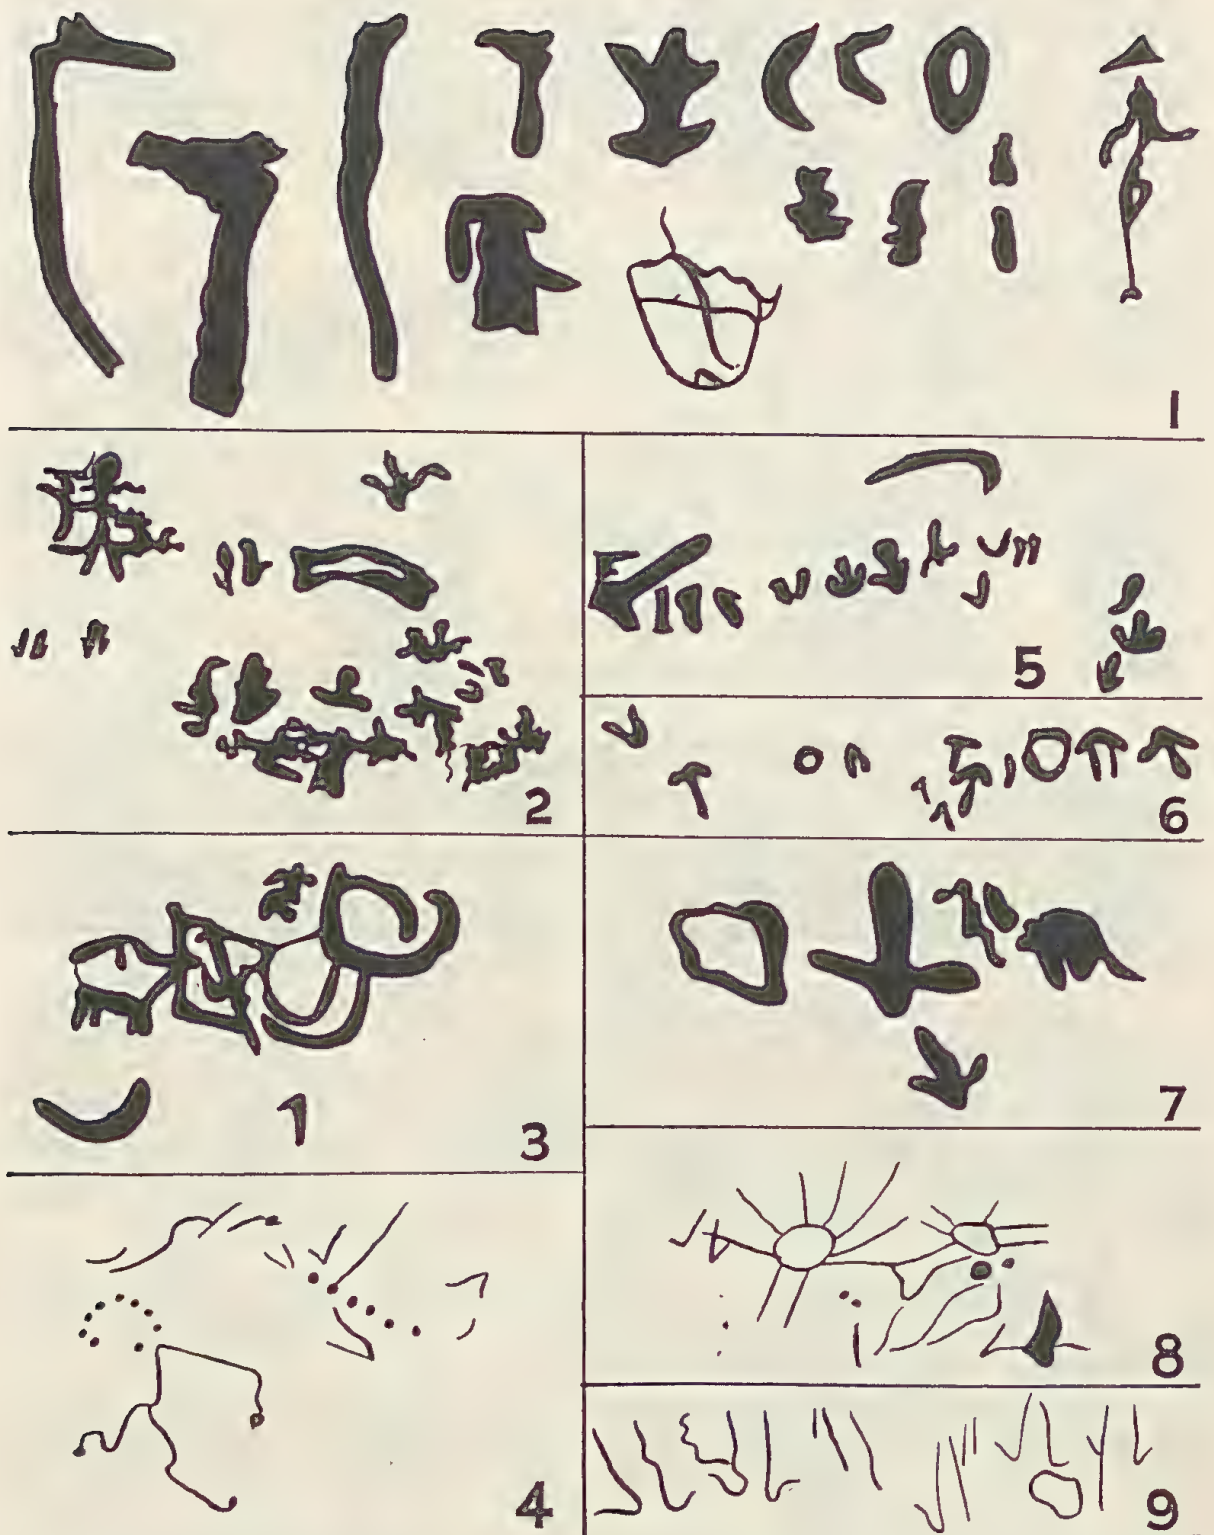 1
2
5
6
3
7
4
8
9